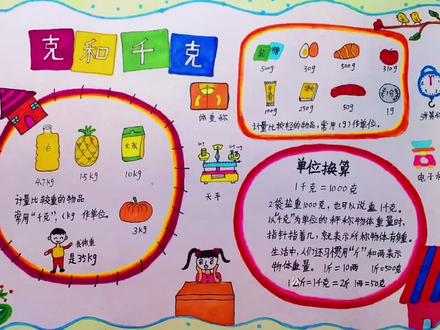 克和千克
盐 糖
500g
30g
500g
310g
100g
250g
50g
1g
计量比较轻的物品,常用(g)作单位。
体重称
天平
弹簧
电子
4.7kg
15kg
大米
10kg
计量比较重的物品
常用“千克”,(kg 作单位。
3kg
我体重
是35kg
单位换算
1千克=1000克
2袋盐重1000克,也可以说重1千克。
以“千克”为单位的秤称物体重量时,
指针指着几,就表示所称物体有多重。
生活中,人们还习惯用“斤”和两表示
物体重量。 1斤=10两 1斤=500克
1公斤=1千克=2斤 1两=50克